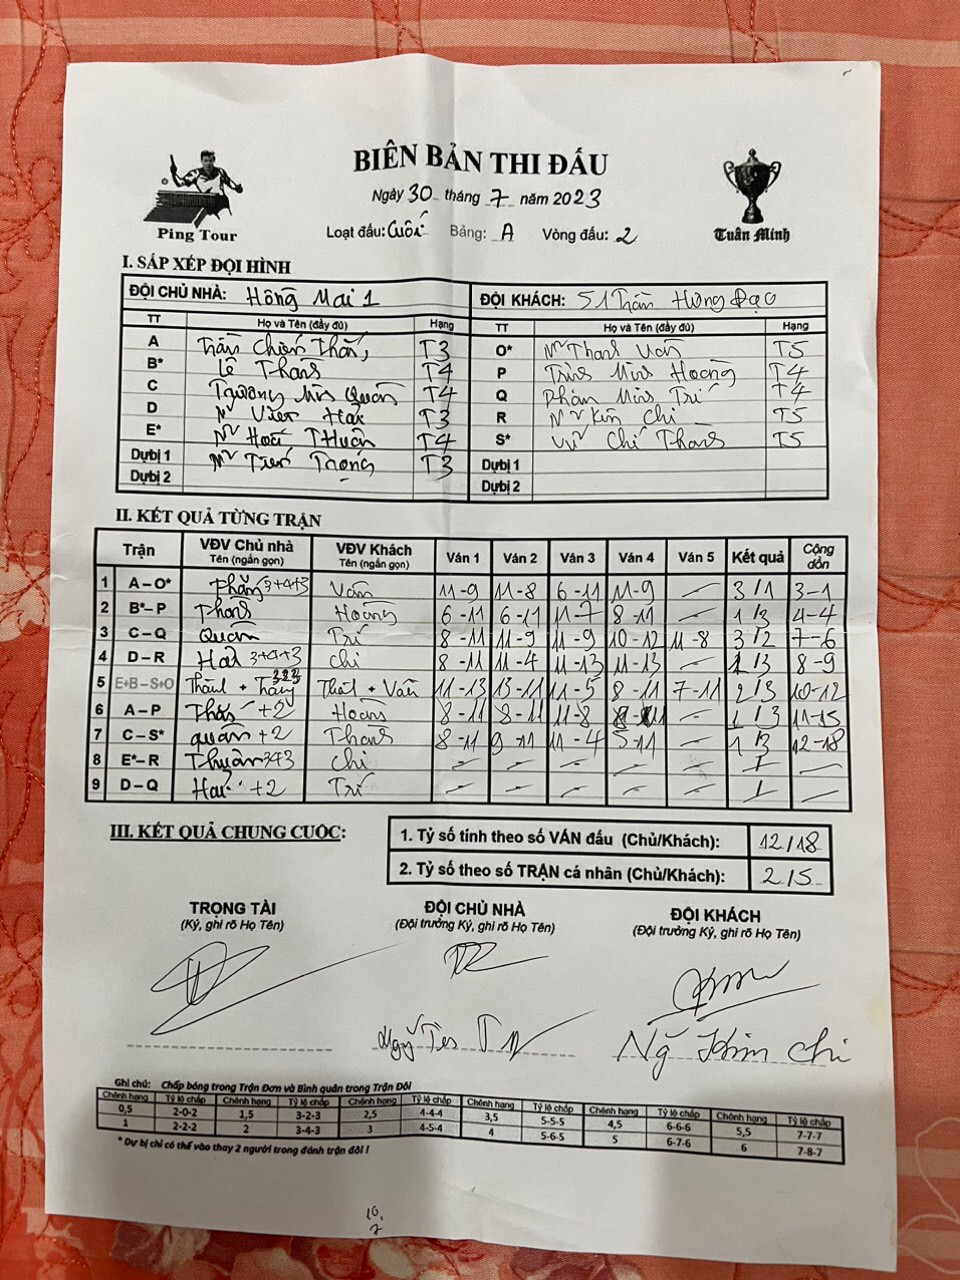 BIÊN BẢN THI ĐẤU
Ngày 30 tháng 7 năm 2023
Ping Tour
Loạt đấu: Cuối Bảng: A Vòng đấu: 2
Tuấn Minh
I. SẮP XẾP ĐỘI HÌNH
ĐỘI CHỦ NHÀ: Hồng Mai 1 ĐỘI KHÁCH: 51 Trần Hưng Đạo
TT Họ và Tên (đầy đủ) Hạng TT Họ và Tên (đầy đủ) Hạng
A Trần Chiến Thắng T3 O* Thanh Vân T5
B* Lê Thans T4 P Hoàng T4
C Trương Quân T4 Q Phan Trí T4
D Hải T3 R Kim Chi T5
E* Thuận T4 S* Vũ Chí T5
Dự bị 1 Trọng T3 Dự bị 1
Dự bị 2 Dự bị 2
II. KẾT QUẢ TỪNG TRẬN
Trận VĐV Chủ nhà Tên (ngắn gọn) VĐV Khách Tên (ngắn gọn) Ván 1 Ván 2 Ván 3 Ván 4 Ván 5 Kết quả Cộng dồn
1 A – O* Thắng 3+4+3 Vân 11-9 11-8 6-11 11-9 – 3/1 3-1
2 B* – P Hoàng 6-11 6-11 11-7 8-11 – 1/3 4-4
3 C – Q Quân Trí 8-11 11-9 11-9 10-12 11-8 3/2 7-6
4 D – R Hải 3+4+3 Chi 8-11 11-4 11-13 11-13 – 1/3 8-9
5 E+B – S+O + 323 + Vân 11-13 13-11 11-5 8-11 7-11 2/3 10-12
6 A – P +2 Hoàng 8-11 8-11 11-8 – 1/3 11-15
7 C – S* quân +2 8-11 9-11 11-4 5-11 – 1/3 12-18
8 E* – R Thuận 3+3 Chi – – – – – / –
9 D – Q Hải +2 Trí – – – – – / –
III. KẾT QUẢ CHUNG CUỘC:
1. Tỷ số tính theo số VÁN đấu (Chủ/Khách): 12/18
2. Tỷ số theo số TRẬN cá nhân (Chủ/Khách): 2/5
TRỌNG TÀI ĐỘI CHỦ NHÀ ĐỘI KHÁCH
(Ký, ghi rõ Họ Tên) (Đội trưởng Ký, ghi rõ Họ Tên) (Đội trưởng Ký, ghi rõ Họ Tên)
Ng Kim Chi
Ghi chú: Chấp bóng trong Trận Đơn và Bình quân trong Trận Đôi
Chênh hạng Tỷ lệ chấp Chênh hạng Tỷ lệ chấp Chênh hạng Tỷ lệ chấp Chênh hạng Tỷ lệ chấp Chênh hạng Tỷ lệ chấp Chênh hạng Tỷ lệ chấp
0,5 2-0-2 1,5 3-2-3 2,5 4-4-4 3,5 5-5-5 4,5 6-6-6 5,5 7-7-7
1 2-2-2 2 3-4-3 3 4-5-4 4 5-6-5 5 6-7-6 6 7-8-7
* Dự bị chỉ có thể vào thay 2 người trong đánh trận đôi !
10.
7